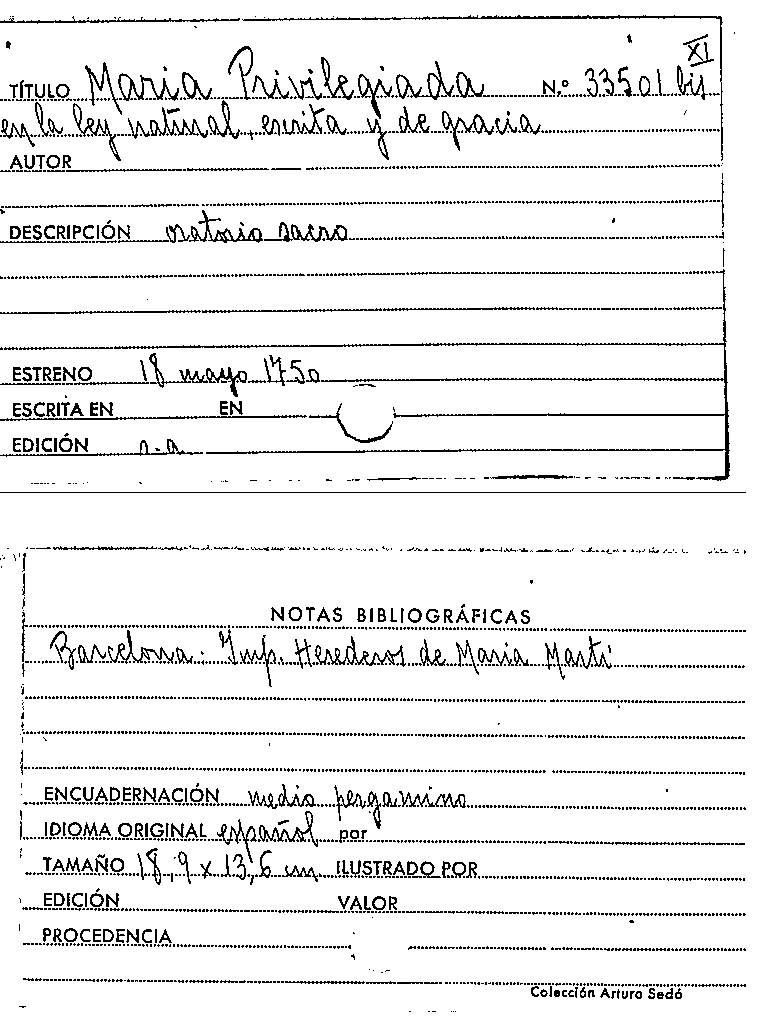 XI
TÍTULO Maria Privilegiada N.º 33501 bis
en la ley natural, escrita y de gracia
AUTOR
DESCRIPCIÓN oratorio sacro
ESTRENO 18 mayo 1750
ESCRITA EN EN
EDICIÓN s.a.
NOTAS BIBLIOGRÁFICAS
Barcelona. Imp. Herederos de Maria Martí
ENCUADERNACIÓN medio pergamino
IDIOMA ORIGINAL español por
TAMAÑO 18,9 x 13,6 cm ILUSTRADO POR
EDICIÓN VALOR
PROCEDENCIA
Colección Arturo Sedó